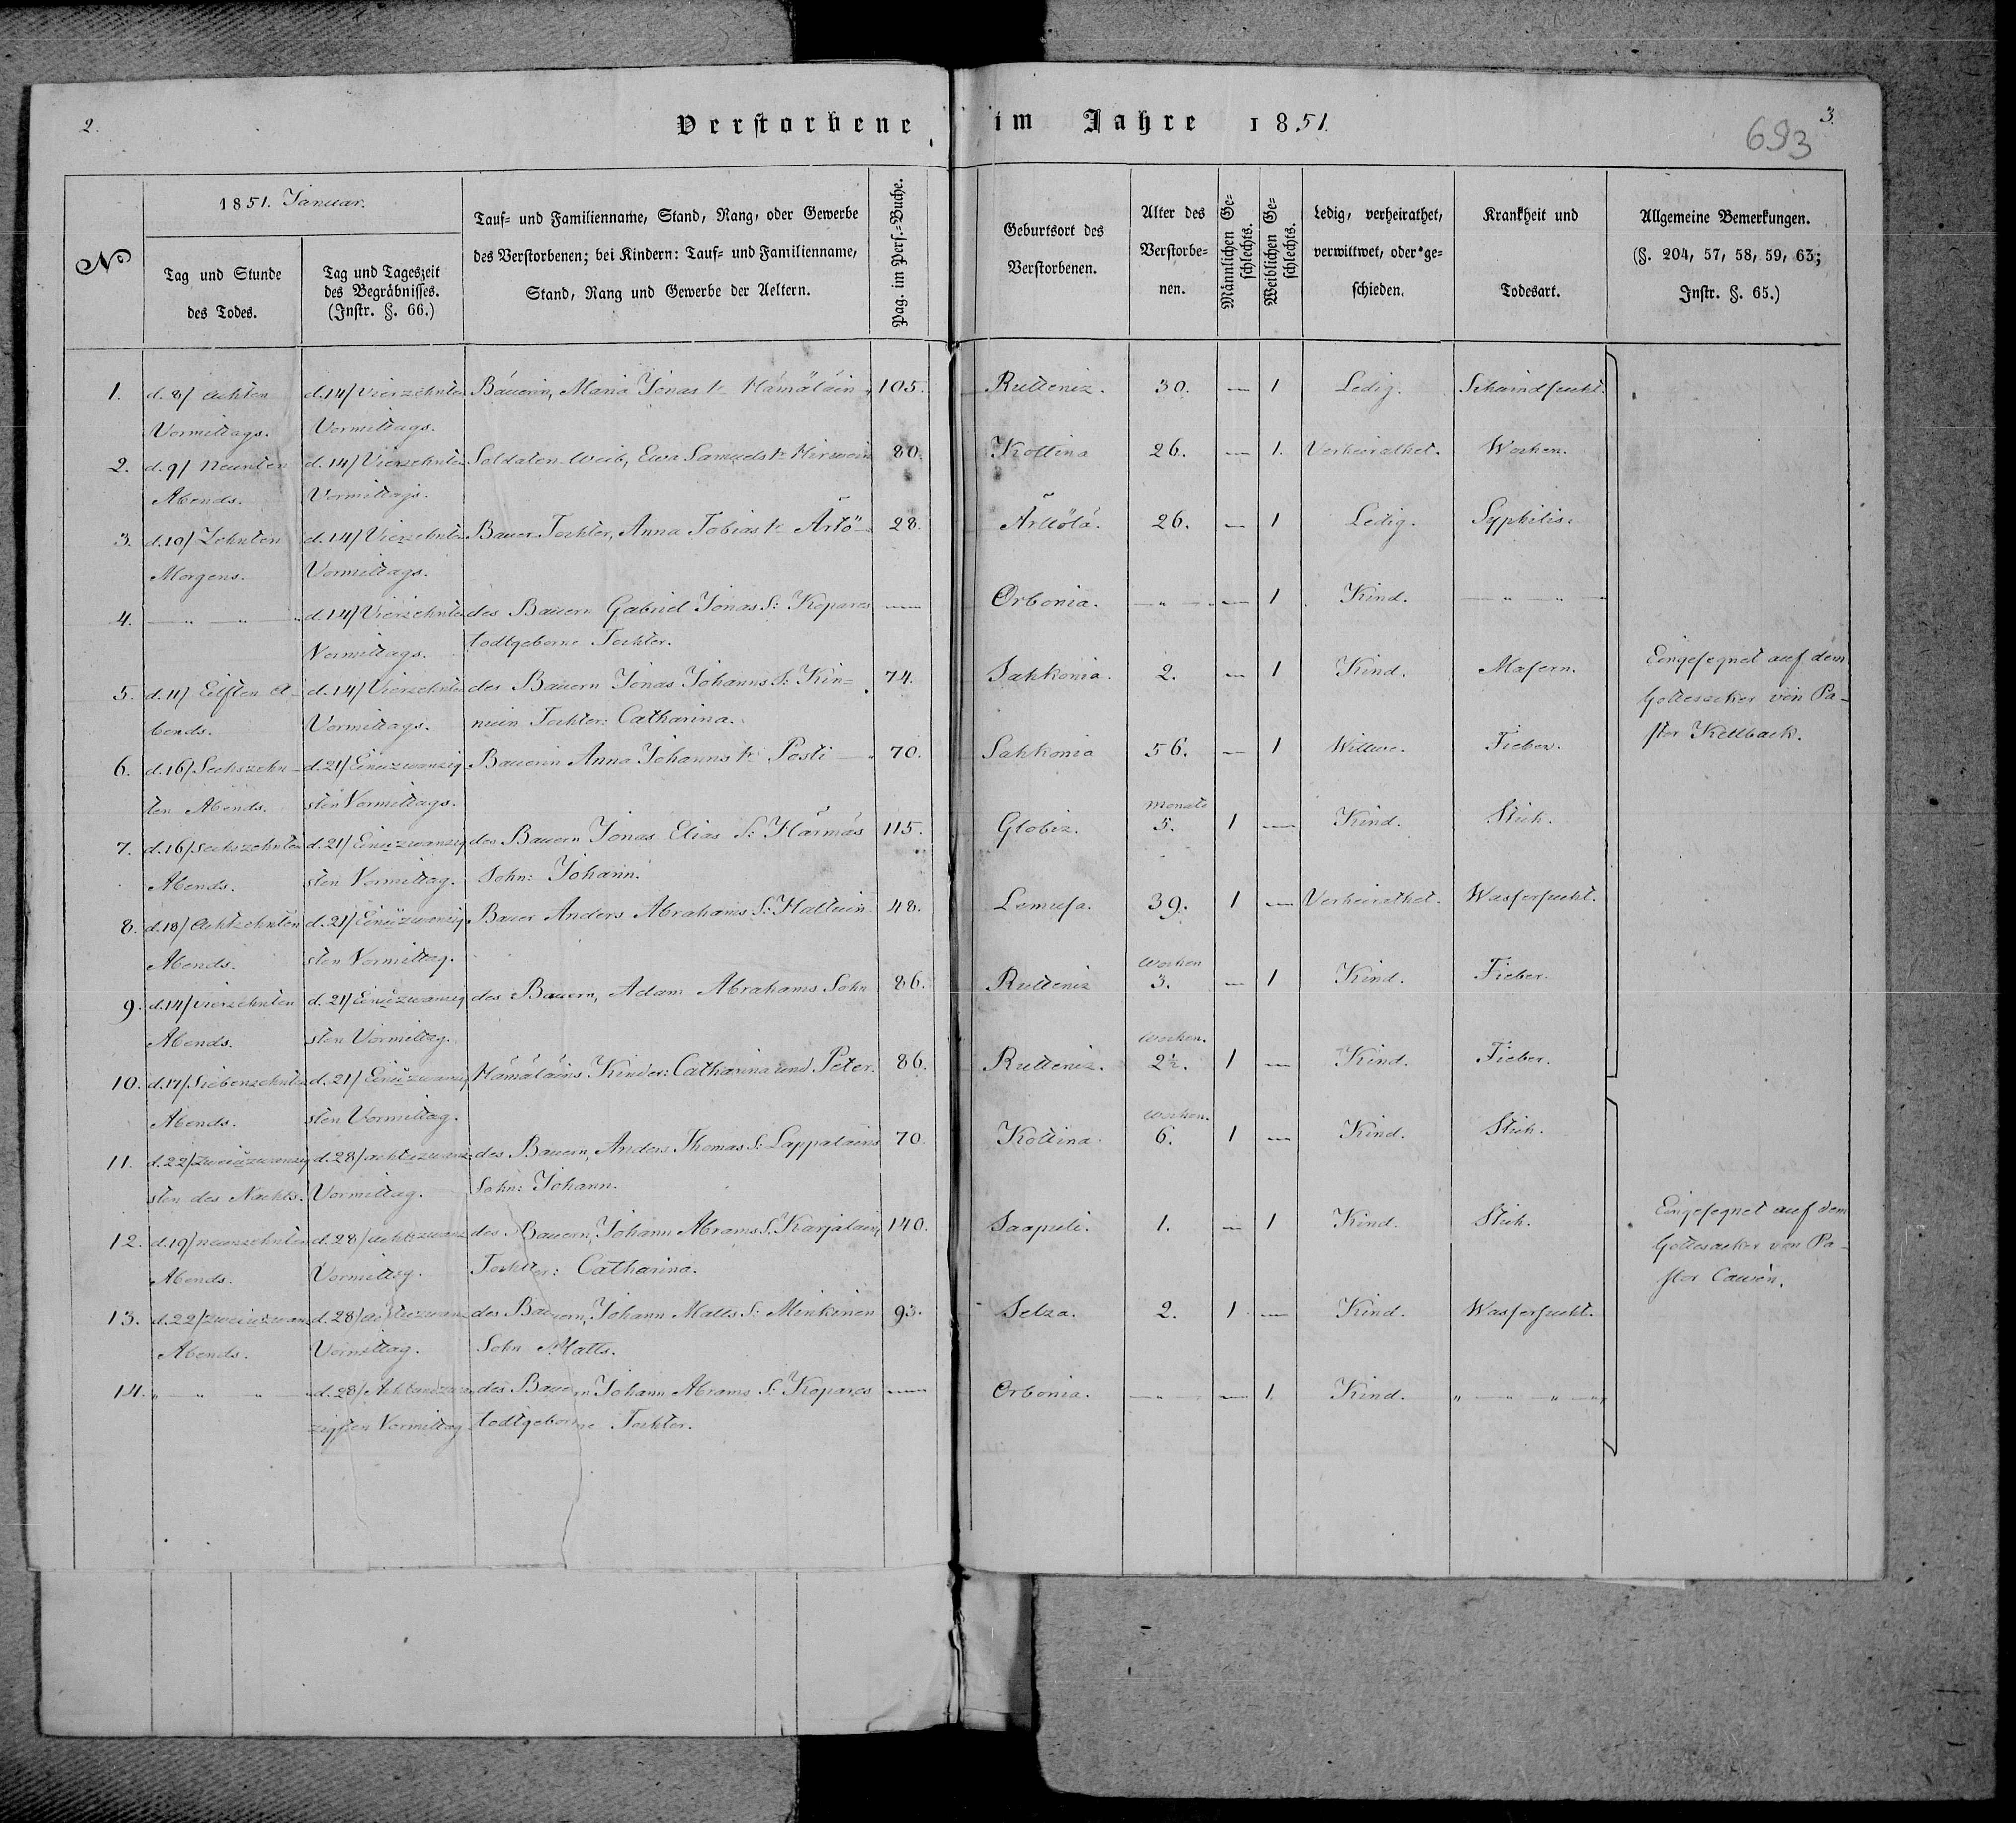 2.
Verstorbene im Jahre 1851.
3.
693
No
1851. Januar.
Tag und Stunde
des Todes.
Tag und Tageszeit
des Begräbnisses.
(Instr. §. 66.)
Tauf- und Familienname, Stand, Rang, oder Gewerbe
des Verstorbenen; bei Kindern: Tauf- und Familienname,
Stand, Rang und Gewerbe der Aeltern.
Pag. im Pers.-Buche.
Geburtsort des
Verstorbenen.
Alter des
Verstorbe-
nen.
Männlichen Ge-
schlechts.
Weiblichen Ge-
schlechts.
Ledig, verheirathet,
verwittwet, oder ge-
schieden.
Krankheit und
Todesart.
Allgemeine Bemerkungen.
(§. 204, 57, 58, 59, 63;
Instr. §. 65.)
1. d. 8/ Achten d. 14/ Vierzehnten Bäuerin, Maria Jonas tr Hämäläin 105. Rutteniz. 30. — 1 Ledig. Schwindsucht.
Vormittags. Vormittags.
2. d. 9/ Neunten d. 14/ Vierzehnten Soldaten-Weib, Ewa Samuels tr Hirwoin 80. Kottina 26. — 1. Verheirathet. Wochen.
Abends. Vormittags.
3. d. 10/ Zehnten d. 14/ Vierzehnten Bauer Tochter, Anna Tobias tr Ärtö 28. Ärttölä. 26. — 1 Ledig. Syphilis.
Morgens. Vormittags.
4. — " — " d. 14/ Vierzehnten des Bauern Gabriel Jonas S: Kopares — Orbonia. — " — — 1 Kind. — " — " —
Vormittags. todtgeborne Tochter.
5. d. 11/ Eilften A- d. 14/ Vierzehnten des Bauern Jonas Johanns S: Kin- 74. Sahkonia. 2. — 1 Kind. Masern.
bends. Vormittags. nuin Tochter: Catharina.
Eingesegnet auf dem
Gottesacker von Pa-
stor Kellback.
6. d. 16/ Sechszehn- d. 21/ Einuzwanzig- Bäuerin Anna Johanns tr Posti 70. Sahkonia 56. — 1 Wittwe. Fieber.
ten Abends. sten Vormittags.
7. d. 16/ Sechszehnten d. 21/ Einuzwanzig des Bauern Jonas Elias S: Härmäs 115. Globiz. Monate 5. 1 — Kind. Stich.
Abends. sten Vormittag. Sohn: Johann.
8. d. 18/ Achtzehnten d. 21/ Einuzwanzig Bauer Anders Abrahams S: Hattuin 48. Lemusa. 39. 1 — Verheirathet. Wassersucht.
Abends. sten Vormittag.
9. d. 14/ Vierzehnten d. 21/ Einuzwanzig des Bauern, Adam Abrahams Sohn 86. Rutteniz Wochen 3. — 1 Kind. Fieber.
Abends. sten Vormittag.
10. d. 17/ Siebenzehnten d. 21/ Einuzwanzig Hämäläins Kinder: Catharina und Peter. 86. Rutteniz. Wochen. 2½. 1 — Kind. Fieber.
Abends. sten Vormittag.
11. d. 22/ Zweiuzwanzig d. 28/ achtuzwanz des Bauern, Anders Thomas S: Lappalains 70. Kottina. Wochen. 6. 1 — Kind. Stich.
sten des Nachts. Vormittag. Sohn: Johann.
12. d. 19/ neunzehnten d. 28/ achtuzwanz des Bauern, Johann Abrams S. Karjalain 140. Saapuli. 1. — 1 Kind. Stich.
Abends. Vormittag. Tochter: Catharina.
Eingesegnet auf dem
Gottesacker von Pa-
stor Cawén.
13. d. 22/ zweiuzwan d. 28/ achtuzwanz des Bauern, Johann Matts S: Minkinen 93. Selza. 2. 1 — Kind. Wassersucht.
Abends. Vormittag. Sohn Matts.
14. " — " — " d. 28/ Achtundzwan des Bauern Johann Abrams S. Kopares — Orbonia. — " — — 1. Kind. " — " — " — "
zigsten Vormittag todtgeborne Tochter.